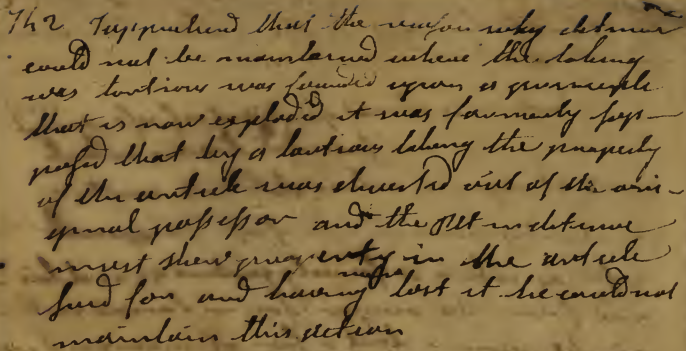 Th 2 I apprehend that the reason why detinue
could not be maintained where the taking
was tortious was founded upon a principle
that is now exploded it was formerly sup-
posed that by a tortious taking the property
of the article was divested out of the ori-
ginal possessor and the Plt in detinue
must shew property in the article
sued for and having lost it he could not
maintain this action